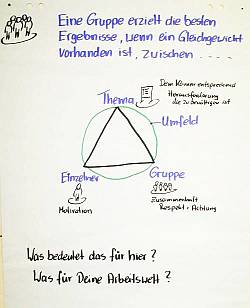 Eine Gruppe erzielt die besten
Ergebnisse, wenn ein Gleichgewicht
vorhanden ist, zwischen ....
Thema
Dem Können entsprechend
Herausforderung
die zu bewältigen ist
Umfeld
Einzelner
Gruppe
Motivation
Zusammenhalt
Respekt + Achtung
Was bedeutet das für hier?
Was für Deine Arbeitswelt?